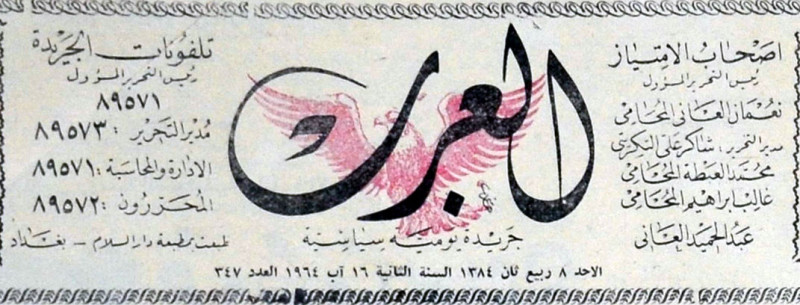 اصحاب الامتياز
رئيس التحرير المسؤول
نعمان العاني المحامي
مدير التحرير: شاكر علي التكريتي
محمد العبطة المحامي
غالب ابراهيم المحامي
عبد الحميد العاني
العرب
جريدة يومية سياسية
تلفونات الجريدة
رئيس التحرير المسؤول
٨٩٥٧١
مدير التحرير : ٨٩٥٧٣
الادارة والمحاسبة : ٨٩٥٧١
المحررون : ٨٩٥٧٢
طبعت بمطبعة دار السلام - بغداد
الاحد ٨ ربيع ثان ١٣٨٤ السنة الثانية ١٦ آب ١٩٦٤ العدد ٣٤٧